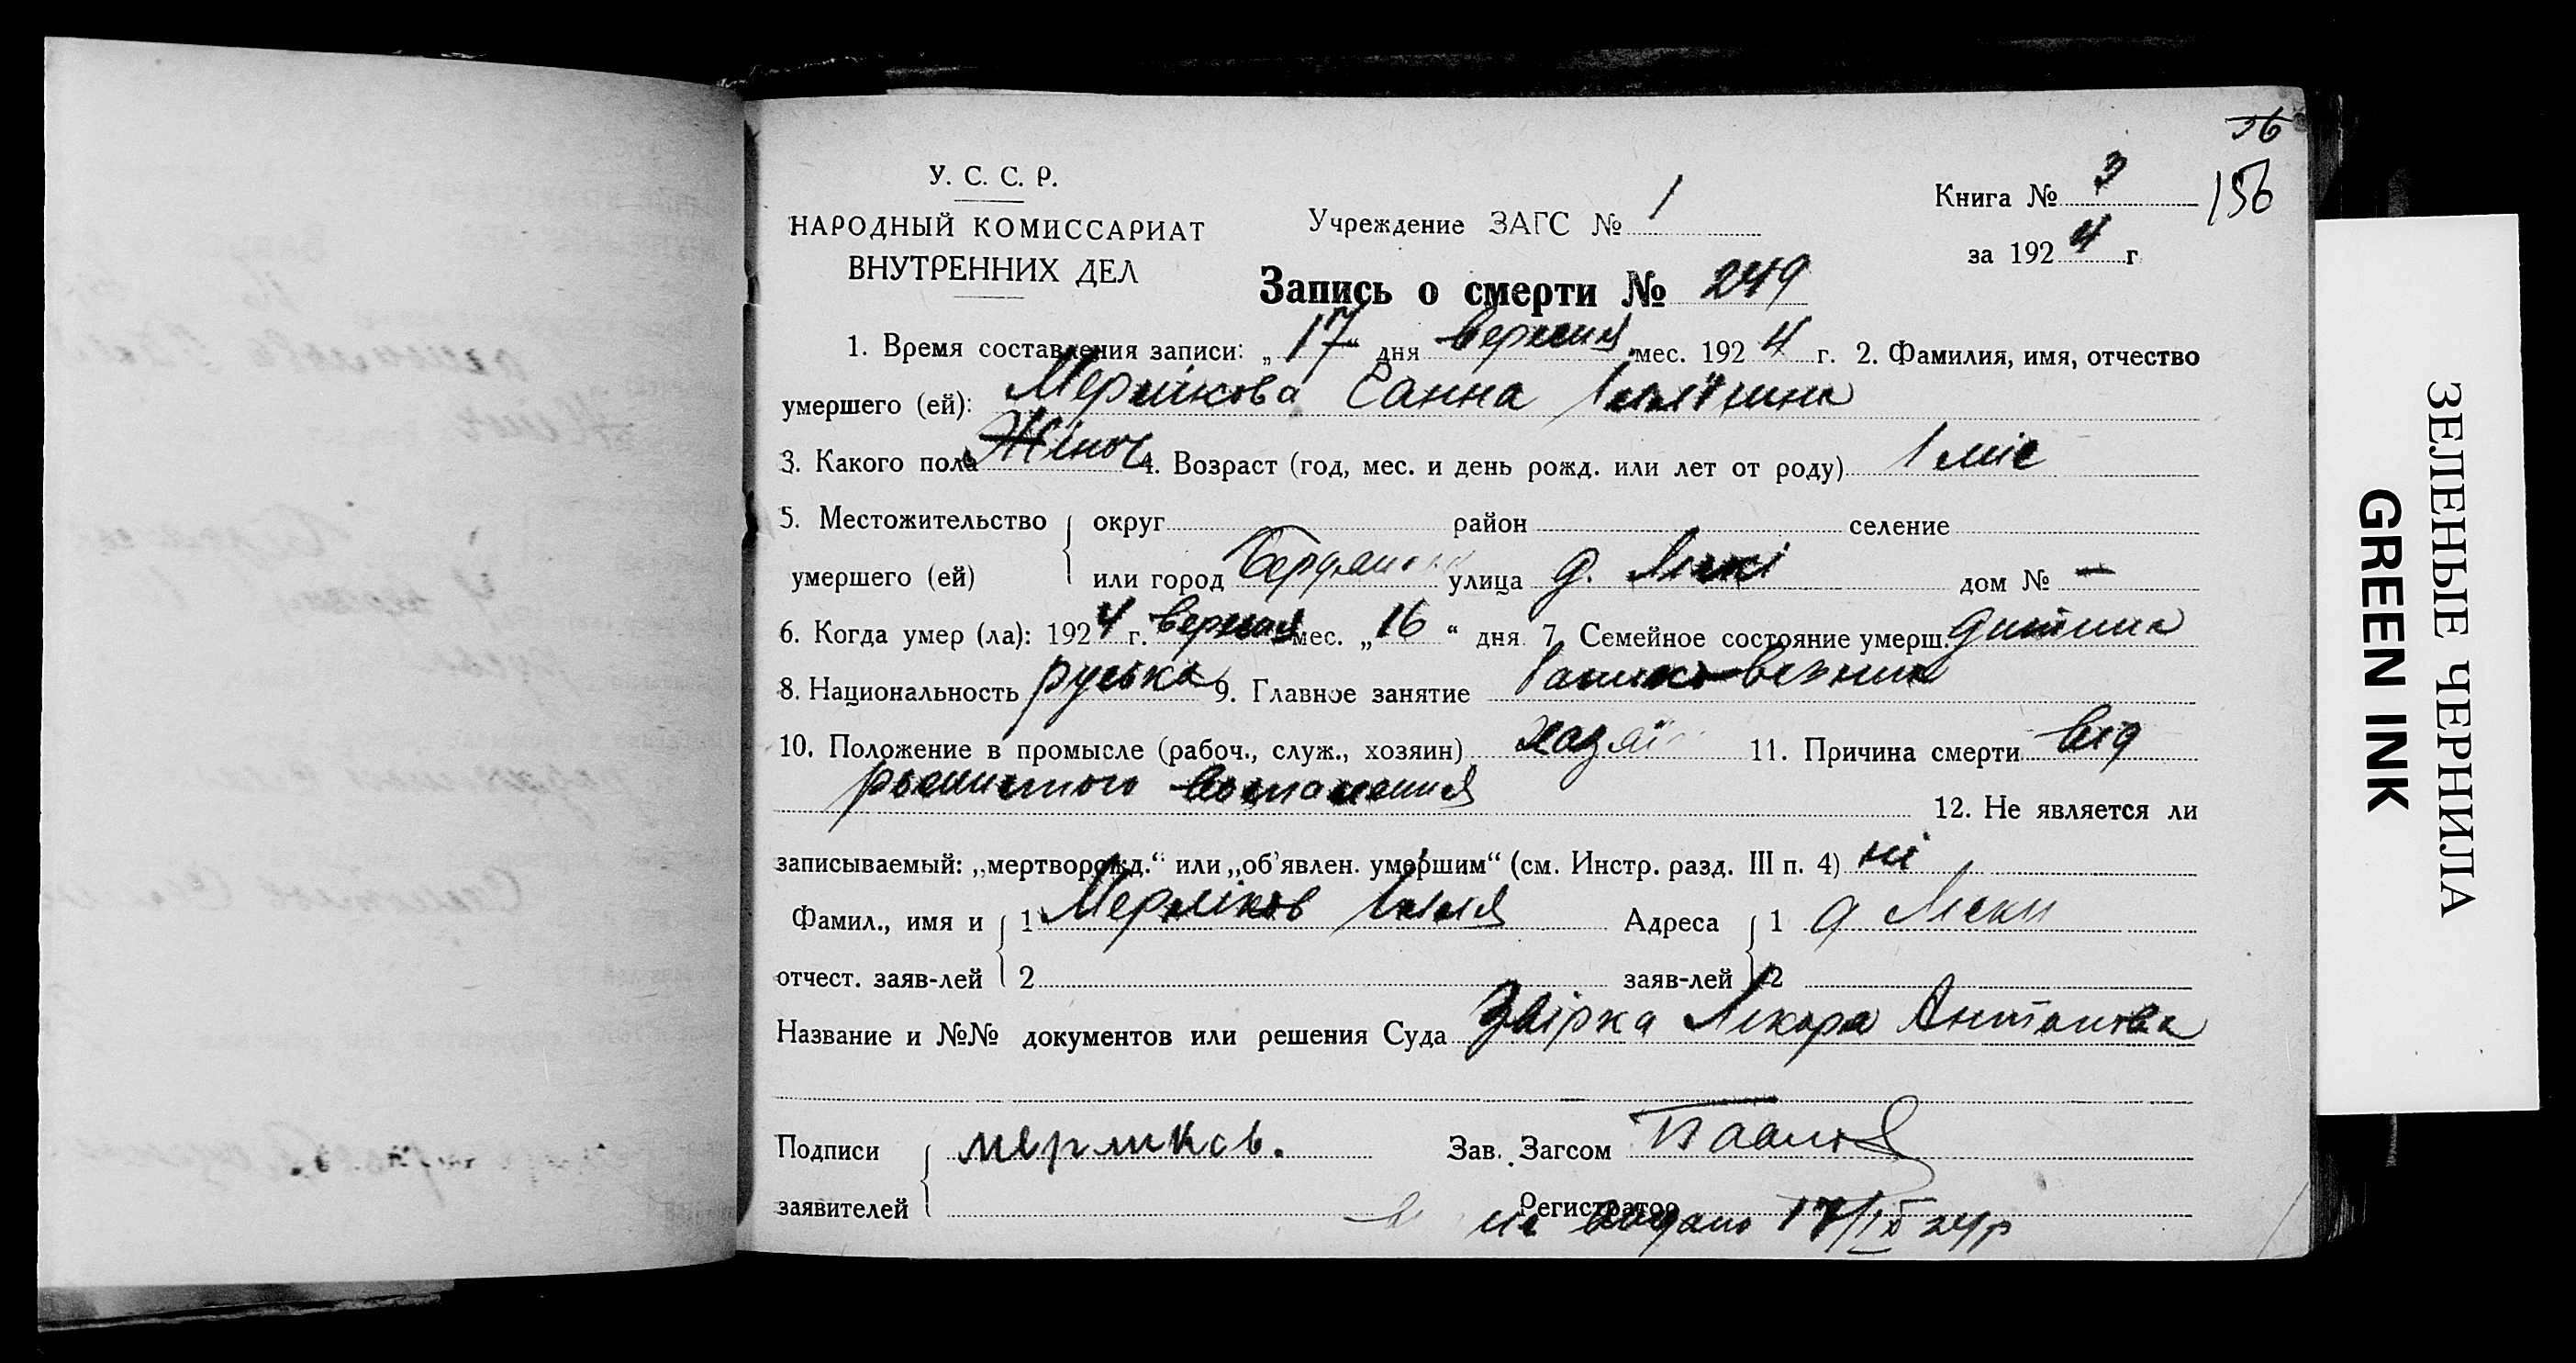 56
156
У. С. С. Р.
НАРОДНЫЙ КОМИССАРИАТ
ВНУТРЕННИХ ДЕЛ
Учреждение ЗАГС № 1
Книга № 3
за 1924 г
Запись о смерти № 249
1. Время составления записи: „17“ дня вересня мес. 1924 г. 2. Фамилия, имя, отчество
умершего (ей): Мерлікова Ганна Іллівна
3. Какого пола Жіноч 4. Возраст (год, мес. и день рожд. или лет от роду) 1 міс
5. Местожительство округ район селение
умершего (ей) или город улица д. Ліски дом № —
6. Когда умер (ла): 1924 г. вересня мес. „16“ дня 7. Семейное состояние умерш. дитина
8. Национальность руська 9. Главное занятие
10. Положение в промысле (рабоч., служ., хозяин) хазяї 11. Причина смерти від
12. Не является ли
записываемый: „мертворожд.“ или „об'явлен. умершим“ (см. Инстр. разд. III п. 4) ні
Фамил., имя и 1 Мерліков Ілля Адреса 1 д Ліски
отчест. заяв-лей 2 заяв-лей 2
Название и №№ документов или решения Суда Звірка Лікаря Антонова
Подписи мерликов. Зав. Загсом
заявителей Регистратор
видано 17/IX 24р
ЗЕЛЕНЫЕ ЧЕРНИЛА
GREEN INK